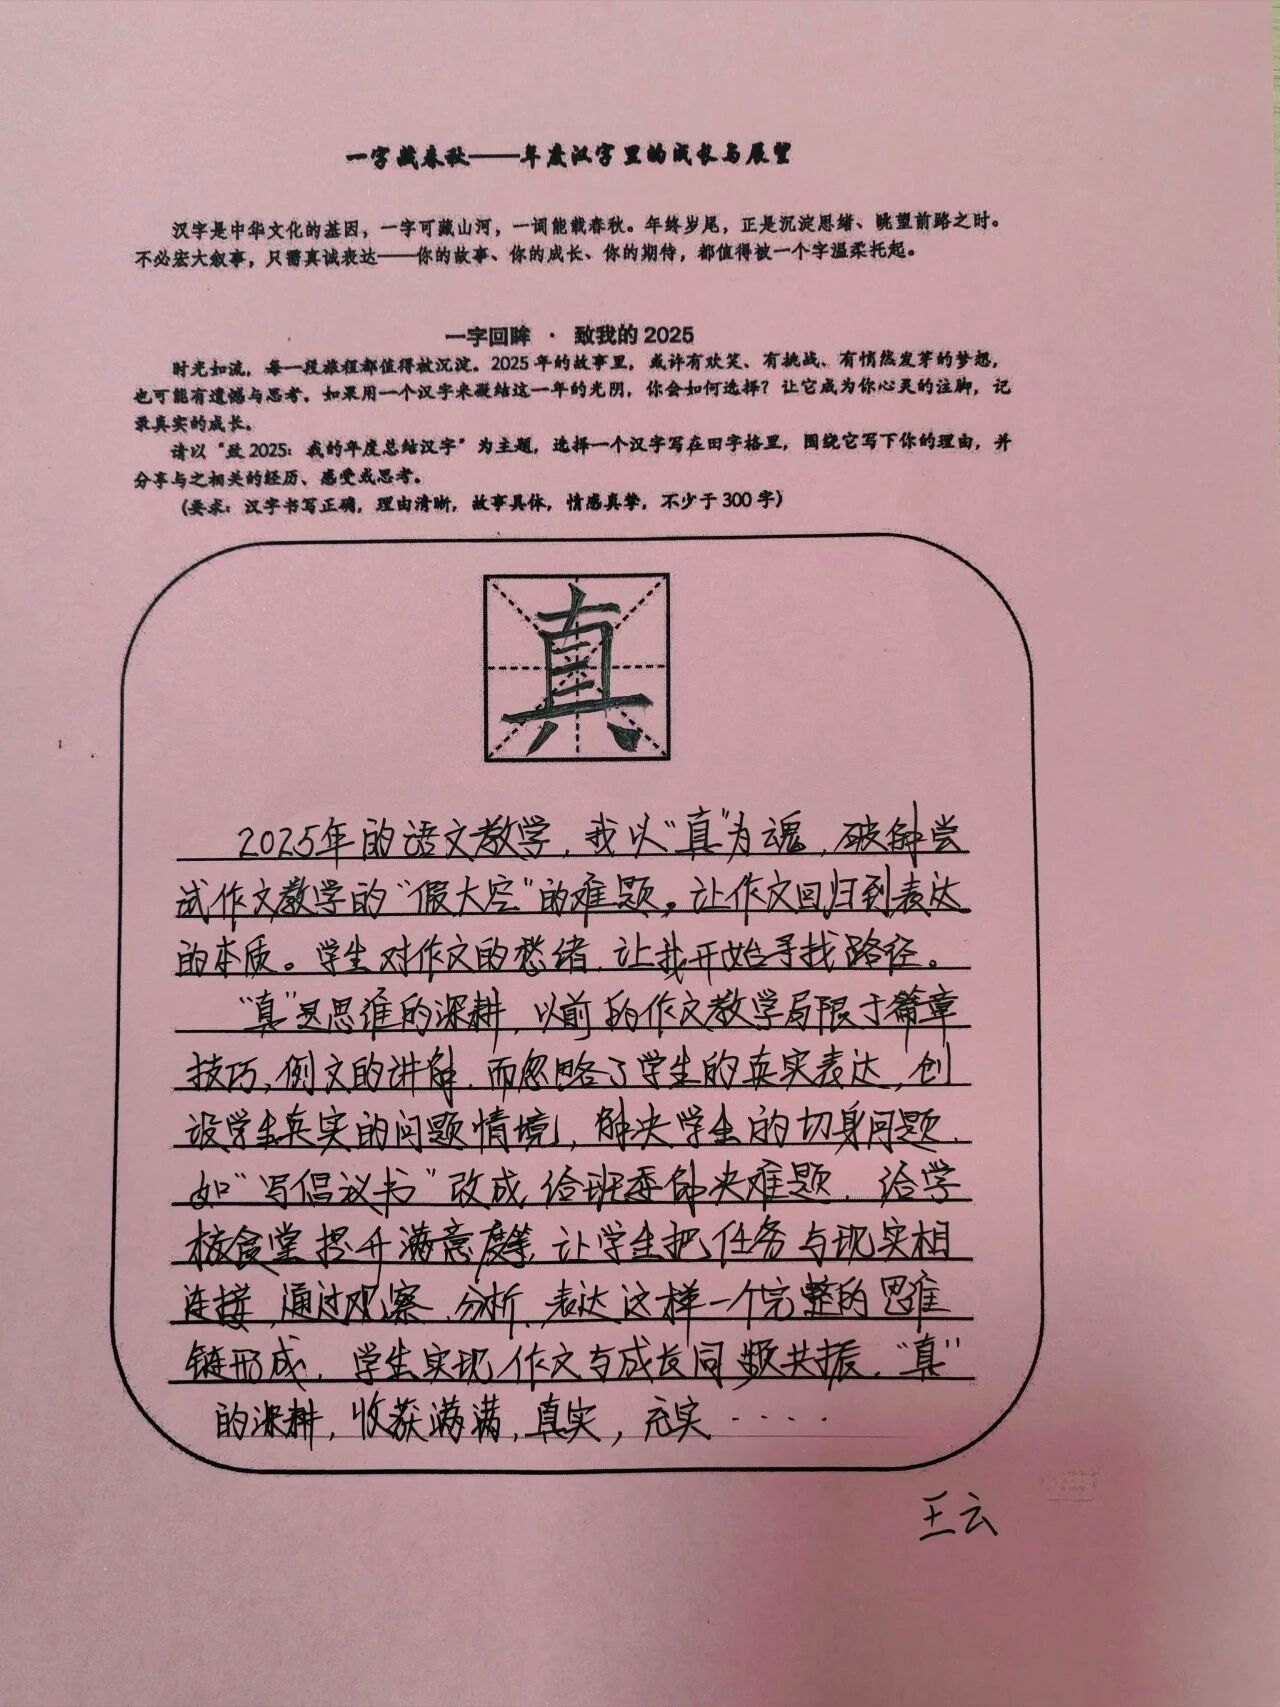 一字藏春秋——年度汉字里的成长与展望
汉字是中华文化的基因，一字可藏山河，一词能载春秋。年终岁尾，正是沉淀思绪、眺望前路之时。
不必宏大叙事，只需真诚表达——你的故事、你的成长、你的期待，都值得被一个字温柔托起。
一字回眸 · 致我的 2025
时光如流，每一段旅程都值得被沉淀。2025 年的故事里，或许有欢笑、有挑战、有悄然发芽的梦想，
也可能有遗憾与思考。如果用一个汉字来凝结这一年的光阴，你会如何选择？让它成为你心灵的注脚，记
录真实的成长。
请以“致 2025：我的年度总结汉字”为主题，选择一个汉字写在田字格里，围绕它写下你的理由，并
分享与之相关的经历、感受或思考。
（要求：汉字书写正确，理由清晰，故事具体，情感真挚，不少于 300 字）
真
2025年的语文教学，我以“真”为魂，破解尝
试作文教学的“假大空”的难题。让作文回归到表达
的本质。学生对作文的愁绪，让我开始寻找路径。
“真”是思维的深耕，以前的作文教学局限于篇章
技巧，例文的讲解，而忽略了学生的真实表达，创
设学生真实的问题情境，解决学生的切身问题，
如“写倡议书”改成，给班委解决难题，给学
校食堂提升满意度等，让学生把任务与现实相
连接，通过观察，分析，表达这样一个完整的思维
链形成，学生实现作文与成长同频共振，“真”
的深耕，收获满满，真实，充实·····
王云